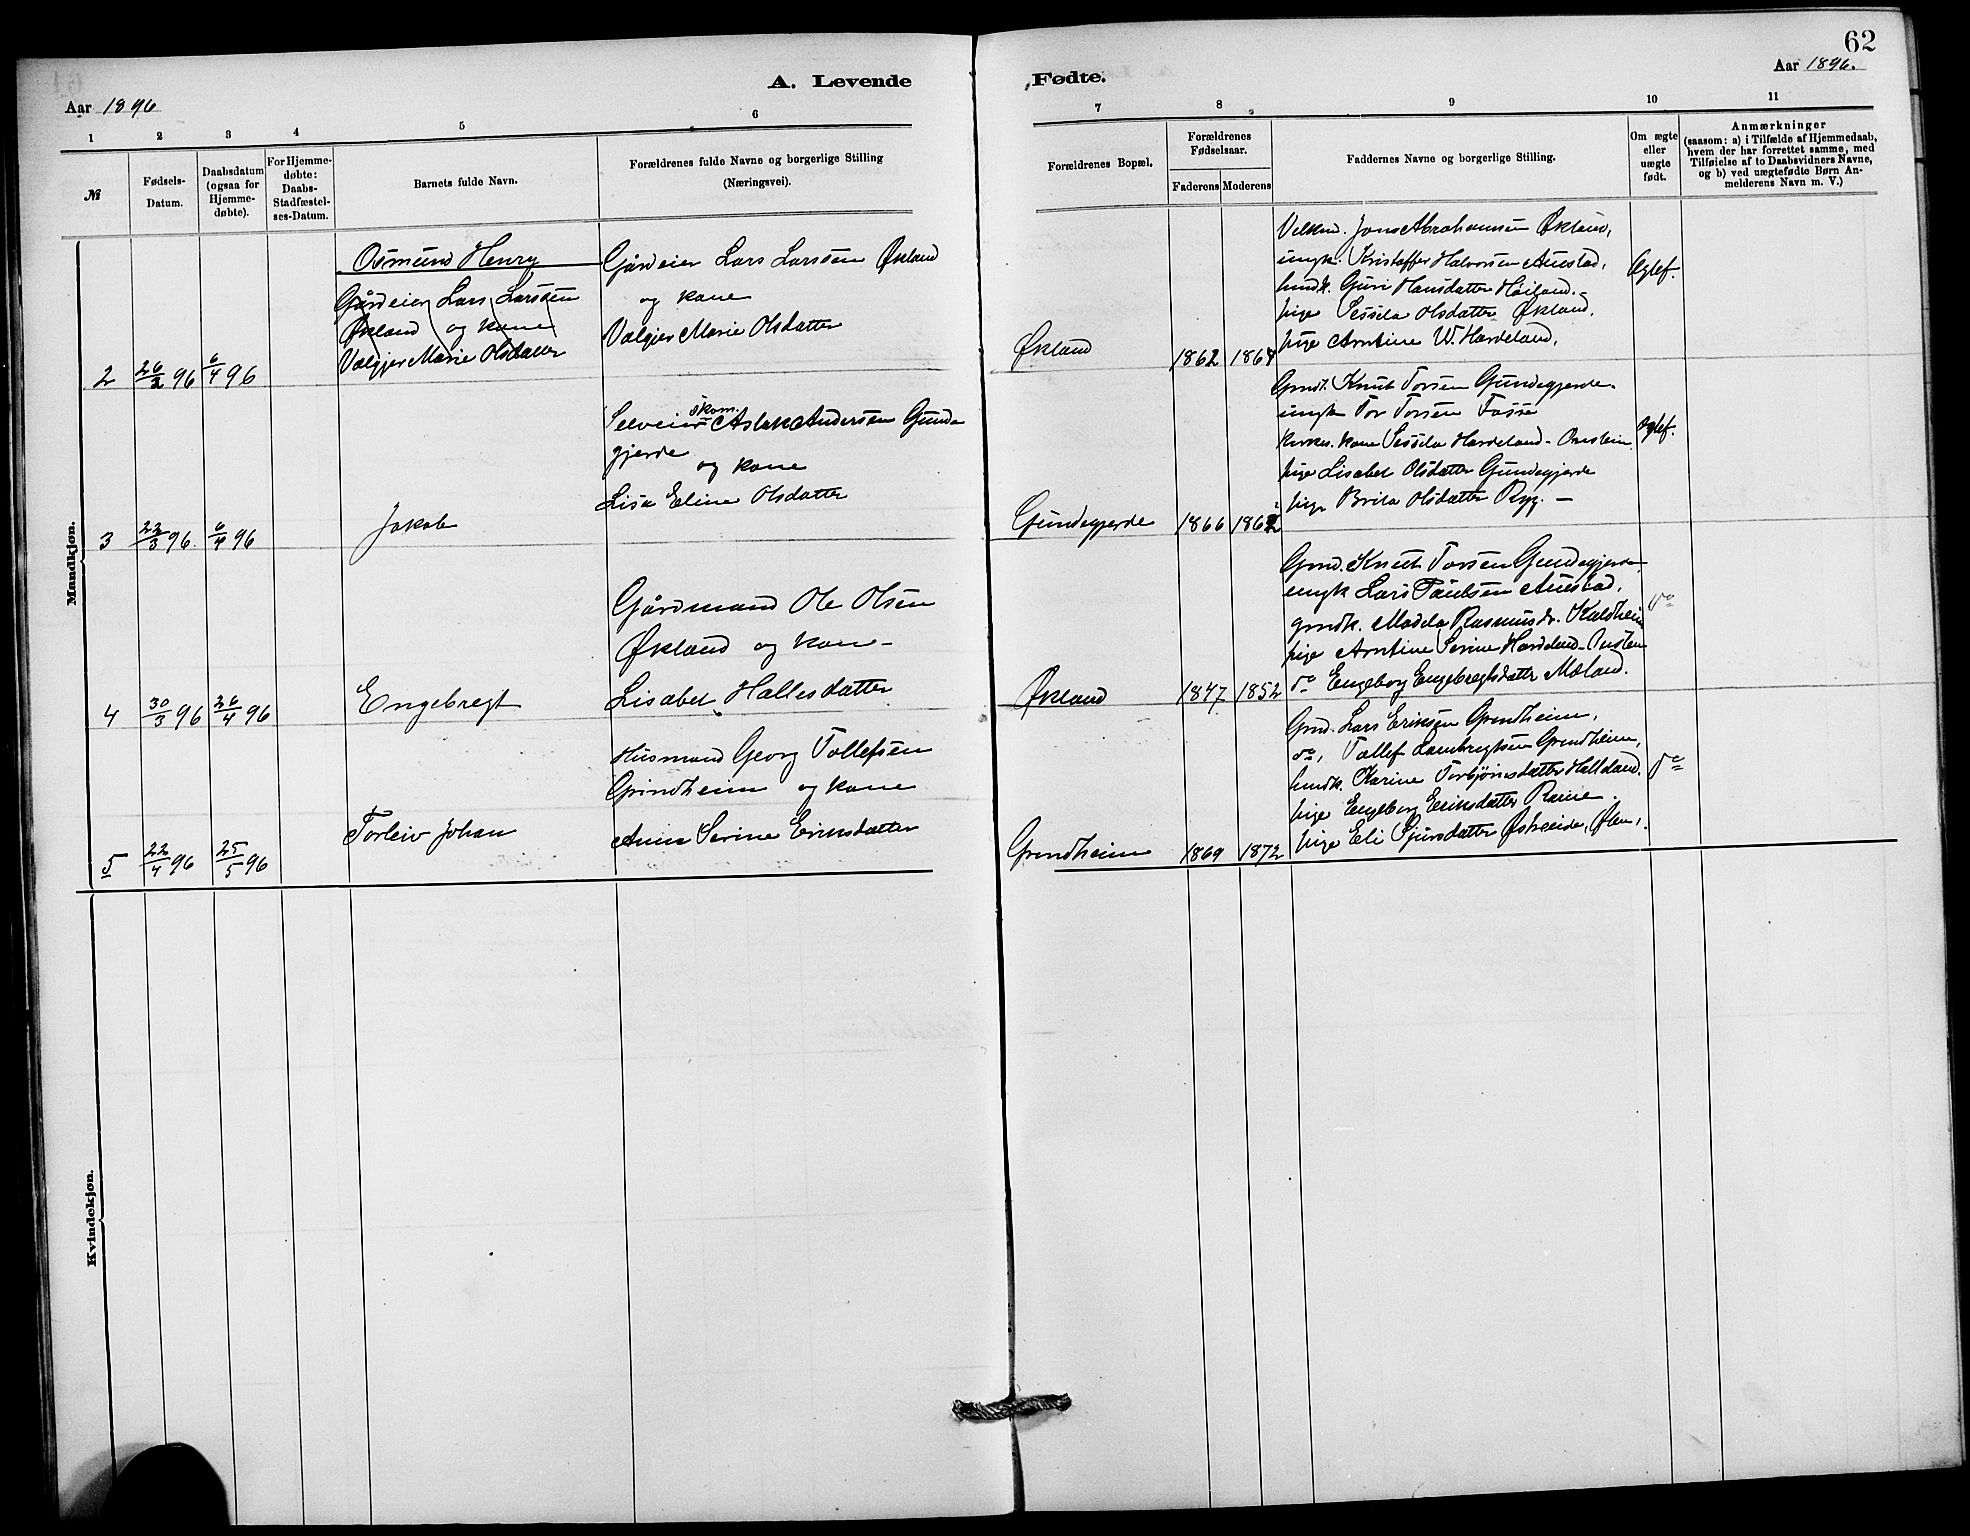 62
A. Levende Fødte.
Aar 1896
Aar 1896.
1 2 3 4 5 6 7 8 9 10 11
№
Fødsels-
Datum.
Daabsdatum
(ogsaa for
Hjemme-
døbte).
For Hjemme-
døbte:
Daabs-
Stadfæstel-
ses-Datum.
Barnets fulde Navn.
Forældrenes fulde Navne og borgerlige Stilling
(Næringsvei).
Forældrenes Bopæl.
Forældrenes
Fødselsaar.
Faderens Moderens
Faddernes Navne og borgerlige Stilling.
Om ægte
eller
uægte
født.
Anmærkninger
(saasom: a) i Tilfælde af Hjemmedaab,
hvem der har forrettet samme, med
Tilføielse af to Daabsvidners Navne,
og b) ved uægtefødte Børn An-
melderens Navn m. V.)
Mandkjøn.
2 26/2 96 6/4 96
Osmund Henry
Gårdeier Lars Larssen
Økland og kone
Valgjer Marie Olsdatter
Gårdeier Lars Larssen Økland
og kone
Valgjer Marie Olsdatter
Økland 1862 1868
Jons Abrahamsen Økland,
ungk. Kristaffer Halvorsen Austad,
husk. Guri Hansdatter Høiland.
pige Sessela Olsdatter Økland,
pige Arntine W. Hardeland,
Egtef.
3 22/3 96. 6/4 96
Jakob
skom.
Selveier Aslak Andersen Gunde
gjerde
og kone
Lisa Eline Olsdatter
Gundegjerde 1866 1862
Grmd. Knut Torsen Gundegjerde.
ungk Tor Torsen Fosse
kirkes. kone Sessela Hardeland - Onstein
pige Lisabet Olsdatter Gundegjerde
pige Brita Olsdatter Ryg. —
Egtef.
4 30/3 96 26/4 96
Engebregt
Gårdmand Ole Olsen
Økland og kone -
Lisabet Hallesdatter
Økland 1847 1852
Grmd. Knut Torsen Gundegjerde,
ungk Lars Paulsen Austad,
grmdk. Madela Rasmusdr. Kaldheim
pige Arntine Serine Hardeland - Onstein
do Engeborg Engebregtsdatter Mæland.
do
5 22/4 96 25/5 96
Torleiv Johan
Husmand Georg Tollefsen
Grindheim og kone
Anna Serine Eriksdatter
Grindheim 1869 1872
Grmd. Lars Eriksen Grindheim,
do, Tollef Lambregtsen Grindheim,
husk. Karine Torbjørnsdatter Halleland.
pige Engeborg Eriksdatter Ramme.
pige Eli Sjursdatter Østreide, Ølen.
do
Kvindekjøn.